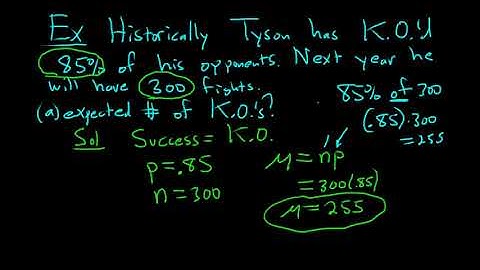 Ex Historically Tyson has K.O.'d
85% of his opponents. Next year he
will have 300 fights.
(a) expected # of K.O.'s?
85% of 300
(.85)·300
= 255
Sol Success = K.O.
p = .85
n = 300
μ = np
= 300(.85)
μ = 255